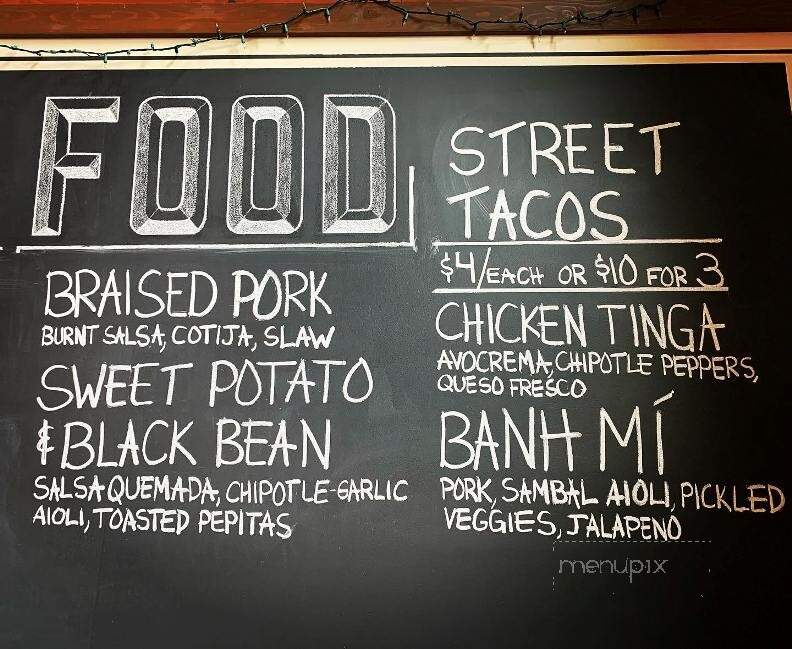 FOOD
STREET
TACOS
$4/EACH OR $10 FOR 3
BRAISED PORK
BURNT SALSA, COTIJA, SLAW
SWEET POTATO
& BLACK BEAN
SALSA QUEMADA, CHIPOTLE-GARLIC
AIOLI, TOASTED PEPITAS
CHICKEN TINGA
AVOCREMA, CHIPOTLE PEPPERS,
QUESO FRESCO
BANH MÍ
PORK, SAMBAL AIOLI, PICKLED
VEGGIES, JALAPENO
menupix